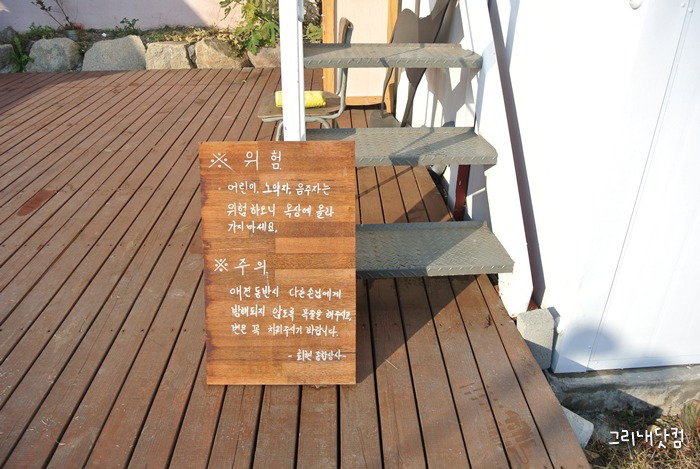 ※ 위험
· 어린이, 노약자, 음주자는
위험하오니 옥상에 올라
가지마세요.
※ 주의
애견 동반시 다른손님에게
방해되지 않도록 목줄을 해주시고,
변은 꼭 치워주시기 바랍니다.
- 회현 종합상사 -
그리내닷컴